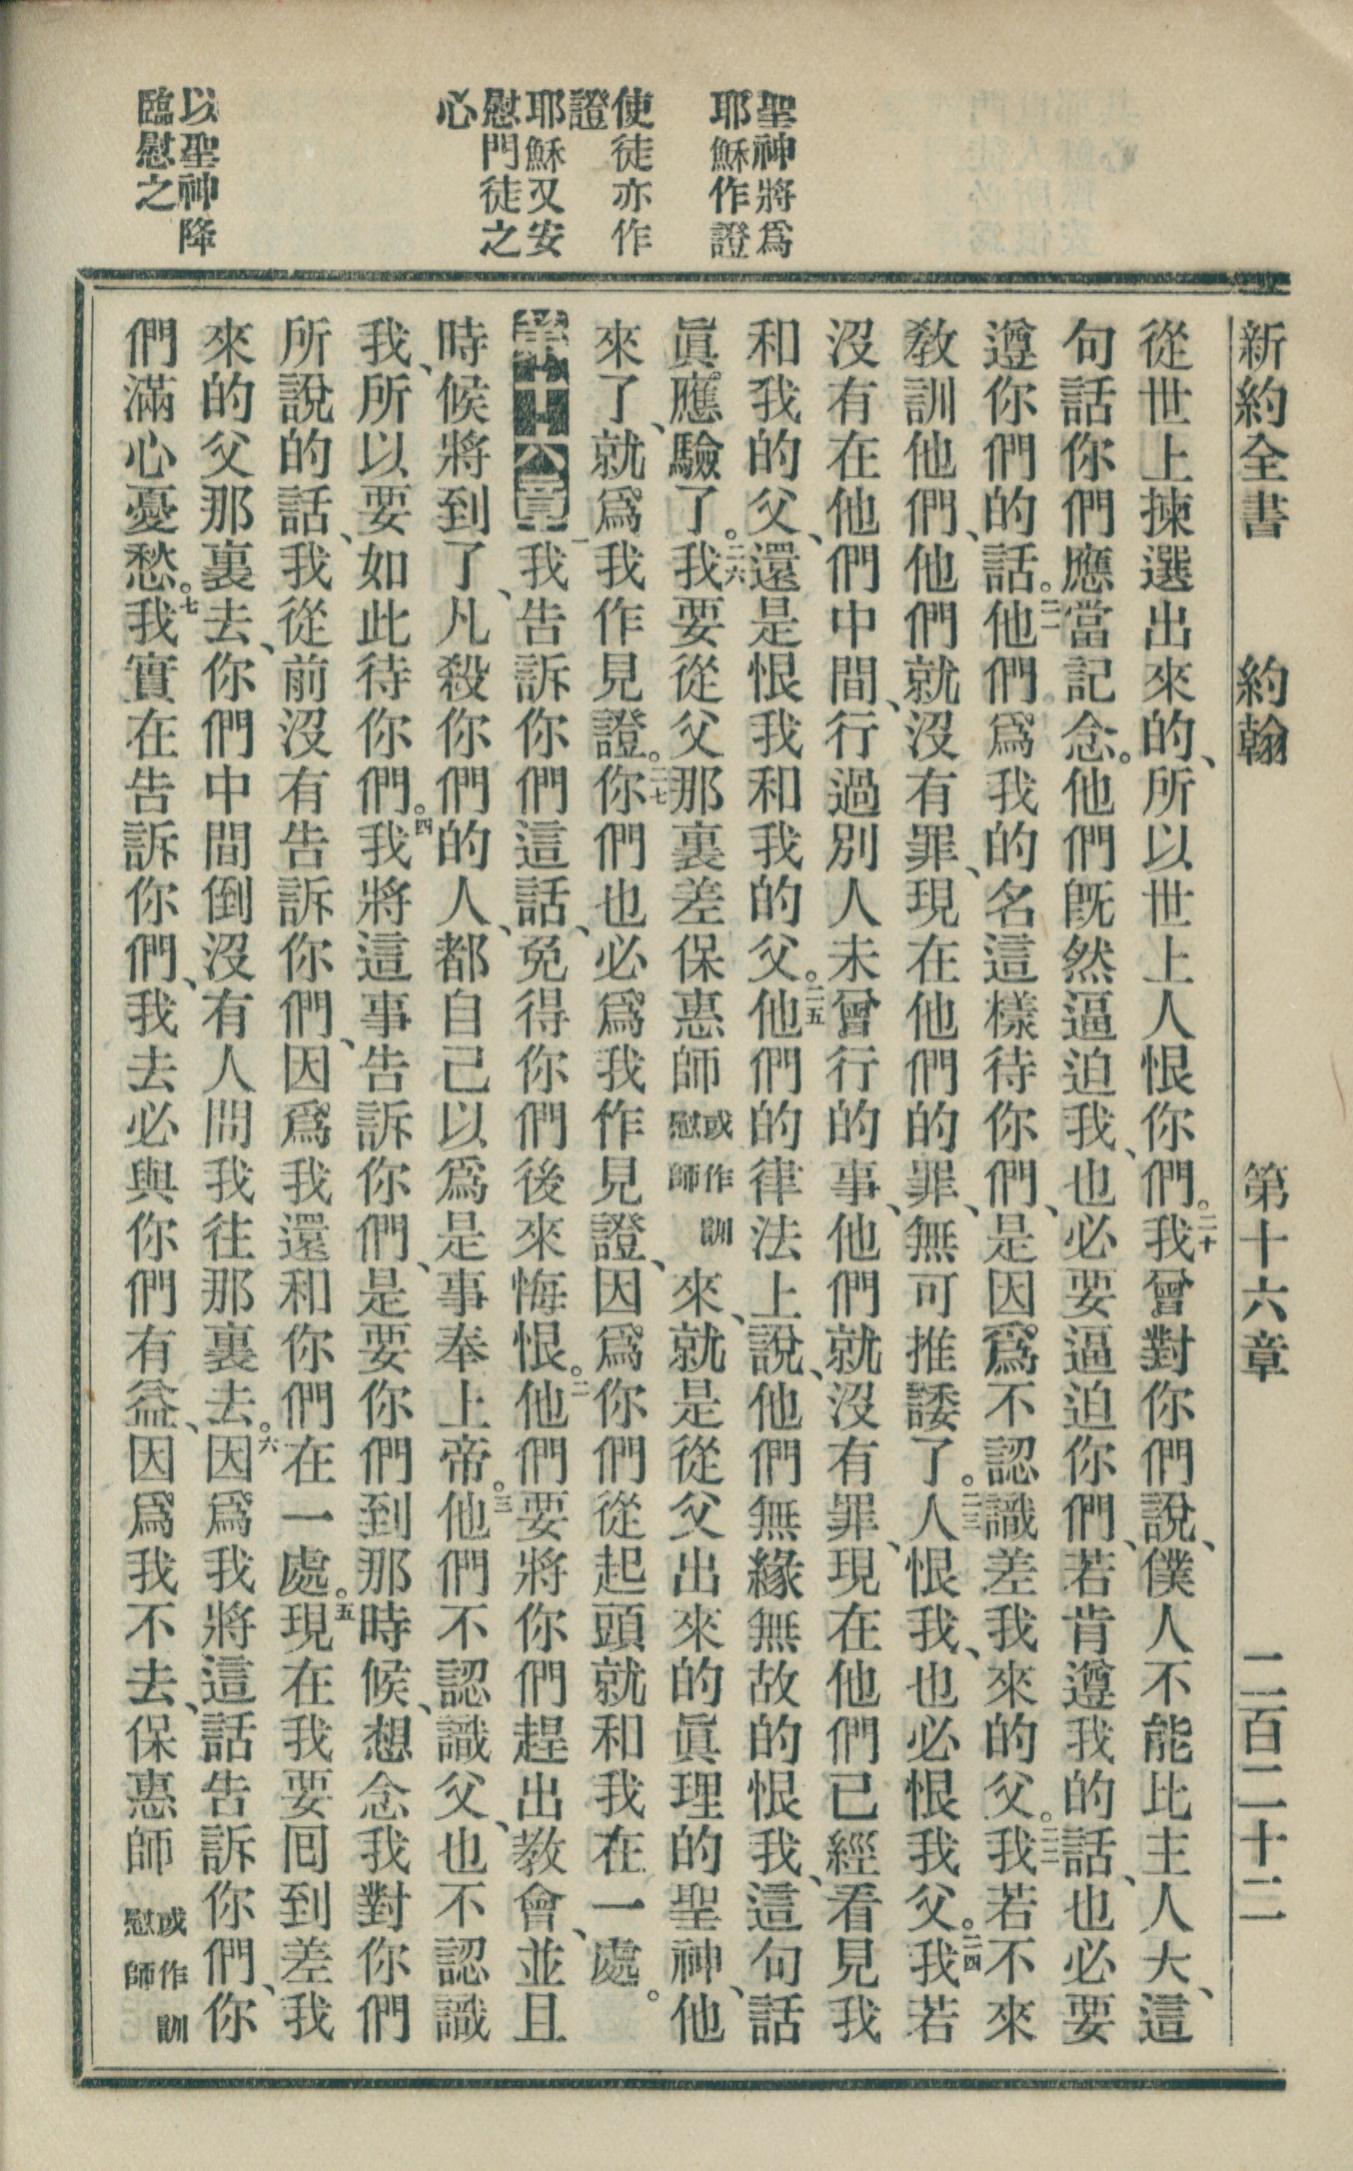 新約全書　約翰　第十六章　二百二十二
聖神將爲
耶穌作證
使徒亦作
證
耶穌又安
慰門徒之
心
以聖神降
臨慰之
從世上揀選出來的、所以世上人恨你們。二十我曾對你們說、僕人不能比主人大、這
句話你們應當記念。他們旣然逼迫我、也必要逼迫你們、若肯遵我的話、也必要
遵你們的話。二一他們爲我的名這樣待你們、是因爲不認識差我來的父。二二我若不來
敎訓他們、他們就沒有罪、現在他們的罪、無可推諉了。二三人恨我、也必恨我父。二四我若
沒有在他們中間、行過別人未曾行的事、他們就沒有罪、現在他們已經看見我
和我的父、還是恨我和我的父。二五他們的律法上說、他們無緣無故的恨我、這句話
眞應驗了。二六我要從父那裏差保惠師或作訓慰師來、就是從父出來的眞理的聖神、他
來了、就爲我作見證。二七你們也必爲我作見證、因爲你們從起頭就和我在一處。
第十六章一我告訴你們這話、免得你們後來悔恨。二他們要將你們趕出敎會、並且
時候將到了、凡殺你們的人、都自己以爲是事奉上帝。三他們不認識父、也不認識
我、所以要如此待你們。四我將這事告訴你們、是要你們到那時候、想念我對你們
所說的話、我從前沒有告訴你們、因爲我還和你們在一處。五現在我要囘到差我
來的父那裏去、你們中間倒沒有人問我往那裏去。六因爲我將這話告訴你們、你
們滿心憂愁。七我實在告訴你們、我去必與你們有益、因爲我不去、保惠師或作訓慰師